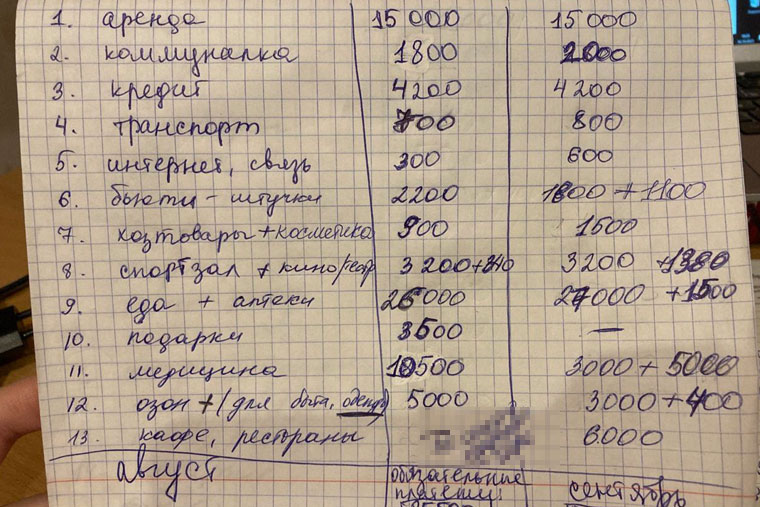 1. аренда 15 000 15 000
2. коммуналка 1800 2000
3. кредит 4200 4200
4. транспорт 700 800
5. интернет, связь 300 600
6. бьюти-штучки 2200 1800 + 1100
7. хозтовары+косметика 900 1500
8. спортзал + кино/театр 3200+840 3200 +1380
9. еда + аптеки 26000 27000 +1500
10. подарки 3500 —
11. медицина 10500 3000 + 5000
12. озон + (для быта, одежда) 5000 3000+400
13. кафе, рестораны 6000
август обязательные сентябрь
платежи